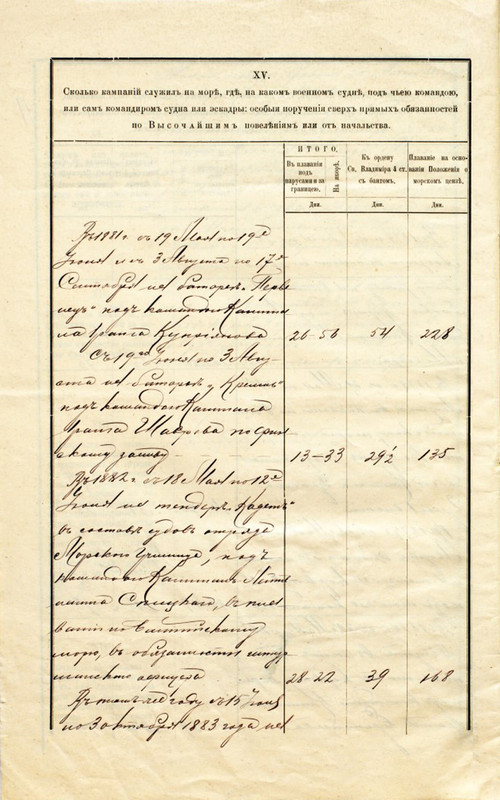 XV.
Сколько кампаній служилъ на морѣ, гдѣ, на какомъ военномъ суднѣ, подъ чьею командою,
или самъ командиромъ судна или эскадры: особыя порученія сверхъ прямыхъ обязанностей
по Высочайшимъ повелѣніямъ или отъ начальства.
ИТОГО.
Въ плаваніи подъ парусами и за границею.
На якорѣ.
Къ ордену Св. Владиміра 4 ст. съ бантомъ.
Плаваніе на основаніи Положенія о морскомъ цензѣ.
Дни.
Дни.
Дни.
Въ 1881 г. съ 19 Мая по 19е
Іюня и съ 3 Августа по 17е
Сентября на батареѣ „Перве
нецъ" подъ командою Капита
на 1 ранга Купріянова 26-56 54 228
Съ 19го Іюня по 3 Авгу
ста на батареѣ „Кремль"
подъ командою Капитана
1 ранга по Фин
скому заливу 13-33 29½ 135
Въ 1882 г. съ 18 Мая по 12е
Іюня на тендерѣ „Кадетъ"
въ составѣ судовъ отряда
Морского Училища, подъ
командою Капитанъ Лейте
нанта въ пла
ваніи по Балтійскому
морю, въ обязанности штур
манскаго офицера 28-22 39 168
Въ томъ же году съ 15 Іюня
по 3 октября 1883 года на